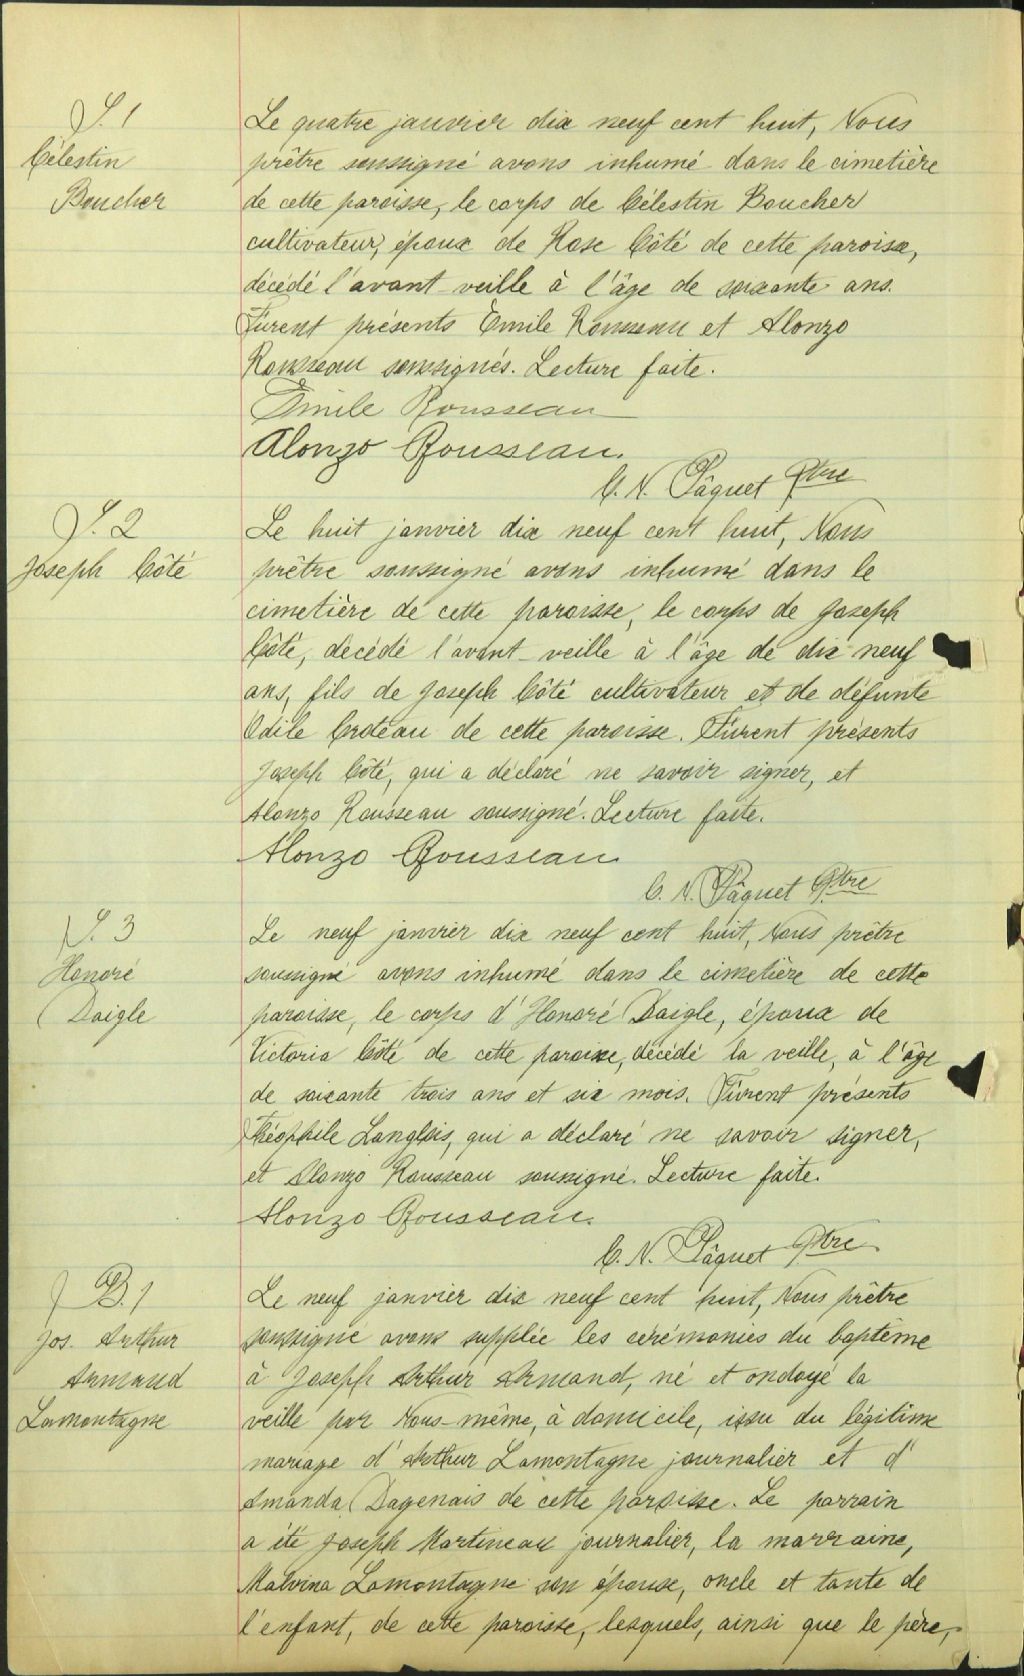 S. 1
Célestin
Boucher
Le quatre janvier dix neuf cent huit, Nous
prêtre soussigné avons inhumé dans le cimetière
de cette paroisse, le corps de Célestin Boucher
cultivateur, époux de Rose Côté de cette paroisse,
décédé l'avant-veille à l'âge de soixante ans.
Furent présents Emile Rousseau et Alonzo
Rousseau soussignés. Lecture faite.
Emile Rousseau
Alonzo Rousseau.
C. N. Pâquet Ptre
S. 2
Joseph Côté
Le huit janvier dix neuf cent huit, Nous
prêtre soussigné avons inhumé dans le
cimetière de cette paroisse, le corps de Joseph
Côté, décédé l'avant-veille à l'âge de dix neuf
ans, fils de Joseph Côté cultivateur et de défunte
Odile Croteau de cette paroisse. Furent présents
Joseph Côté, qui a déclaré ne savoir signer, et
Alonzo Rousseau soussigné. Lecture faite.
Alonzo Rousseau
C. N. Pâquet Ptre
S. 3
Honoré
Daigle
Le neuf janvier dix neuf cent huit, Nous prêtre
soussigné avons inhumé dans le cimetière de cette
paroisse, le corps d'Honoré Daigle, époux de
Victoria Côté de cette paroisse, décédé la veille, à l'âge
de soixante trois ans et six mois. Furent présents
Théophile Langlois, qui a déclaré ne savoir signer,
et Alonzo Rousseau soussigné. Lecture faite.
Alonzo Rousseau.
C. N. Pâquet Ptre
B. 1
Jos. Arthur
Armand
Lamontagne
Le neuf janvier dix neuf cent huit, Nous prêtre
soussigné avons supplée les cérémonies du baptême
à Joseph Arthur Armand, né et ondoyé la
veille par Nous-même, à domicile, issu du légitime
mariage d'Arthur Lamontagne journalier et d'
Amanda Dagenais de cette paroisse. Le parrain
a été Joseph Martineau journalier, la marraine,
Malvina Lamontagne son épouse, oncle et tante de
l'enfant, de cette paroisse, lesquels, ainsi que le père,